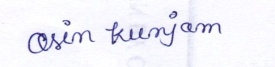 Osin kunjam